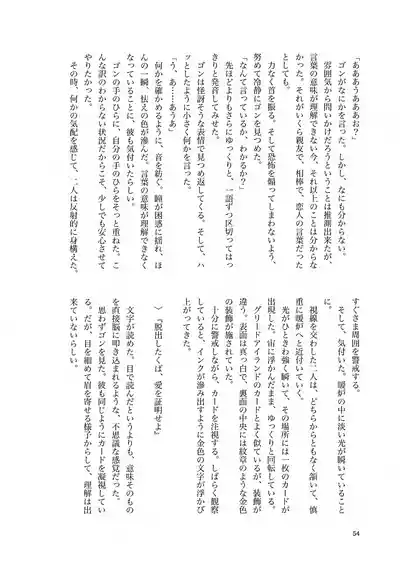 「あああうあああお？」
　ゴンがなにかを言った。しかし、なにも分からない。
　雰囲気から問いかけだろうということは推測出来たが、
言葉の意味が理解できない今、それ以上のことは分からな
かった。それがいくら親友で、相棒で、恋人の言葉だった
としても。
　力なく首を振る。そして恐怖を煽ってしまわないよう、
努めて冷静にゴンを見つめた。
「なんて言っているか、わかるか？」
　先ほどよりもさらにゆっくりと、一語ずつ区切ってはっ
きりと発音してみせた。
　ゴンは怪訝そうな表情で見つめ返してくる。そして、ハ
ッとしたように小さく何かを言った。
「う、あ……あうあ」
　何かを確かめるように、音を紡ぐ。瞳が困惑に揺れ、ほ
んの一瞬、怯えの色が滲んだ。言葉の意味が理解できなく
なっていることに、彼も気付いたらしい。
　ゴンの手のひらに、自分の手のひらをそっと重ねた。こ
んな訳のわからない状況だからこそ、少しでも安心させて
やりたかった。
　その時、何かの気配を感じて、二人は反射的に身構えた。
すぐさま周囲を警戒する。
　そして、気付いた。暖炉の中に淡い光が瞬いていること
に。
　視線を交わした二人は、どちらからともなく頷いて、慎
重に暖炉へと近付いていく。
　光がひときわ強く瞬いて、その場所には一枚のカードが
出現した。宙に浮かんだまま、ゆっくりと回転している。
　グリードアイランドのカードとよく似ているが、装飾が
違う。表面は真っ白で、裏面の中央には紋章のような金色
の装飾が施されていた。
　十分に警戒しながら、カードを注視する。しばらく観察
していると、インクが滲み出すように金色の文字が浮かび
上がってきた。
〉『脱出したくば、愛を証明せよ』
　文字が読めた。目で読んだというよりも、意味そのもの
を直接脳に叩き込まれるような、不思議な感覚だった。
　思わずゴンを見た。彼も同じようにカードを凝視してい
る。だが、目を細めて眉を寄せる様子からして、理解は出
来ていないらしい。
54